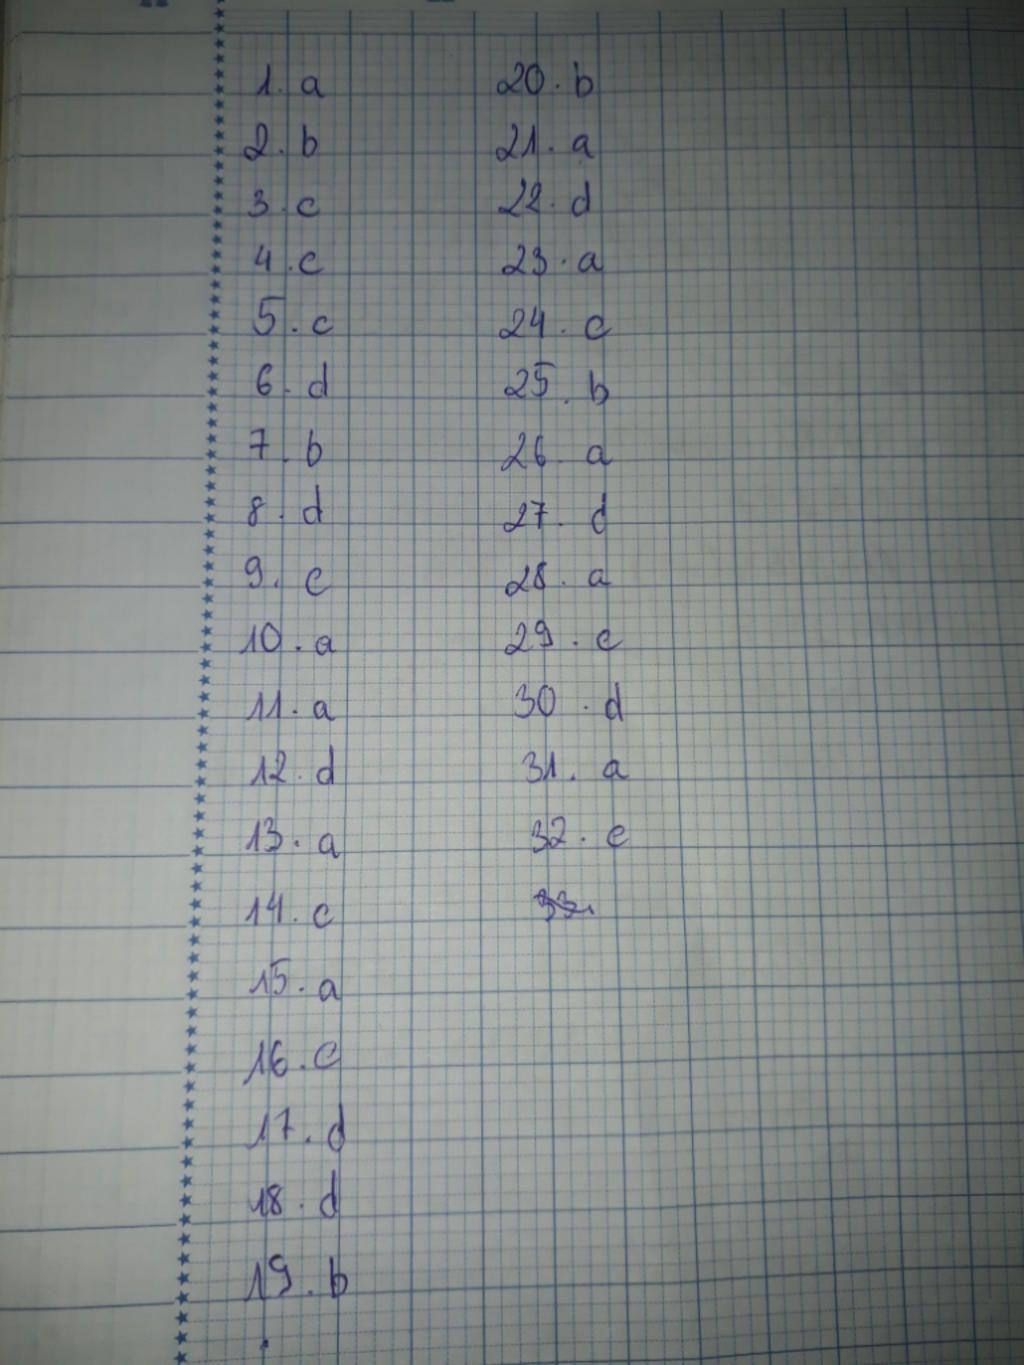 1. a
2. b
3. c
4. c
5. c
6. d
7. b
8. d
9. c
10. a
11. a
12. d
13. a
14. c
15. a
16. c
17. d
18. d
19. b
20. b
21. a
22. d
23. a
24. c
25. b
26. a
27. d
28. a
29. c
30. d
31. a
32. c
33.